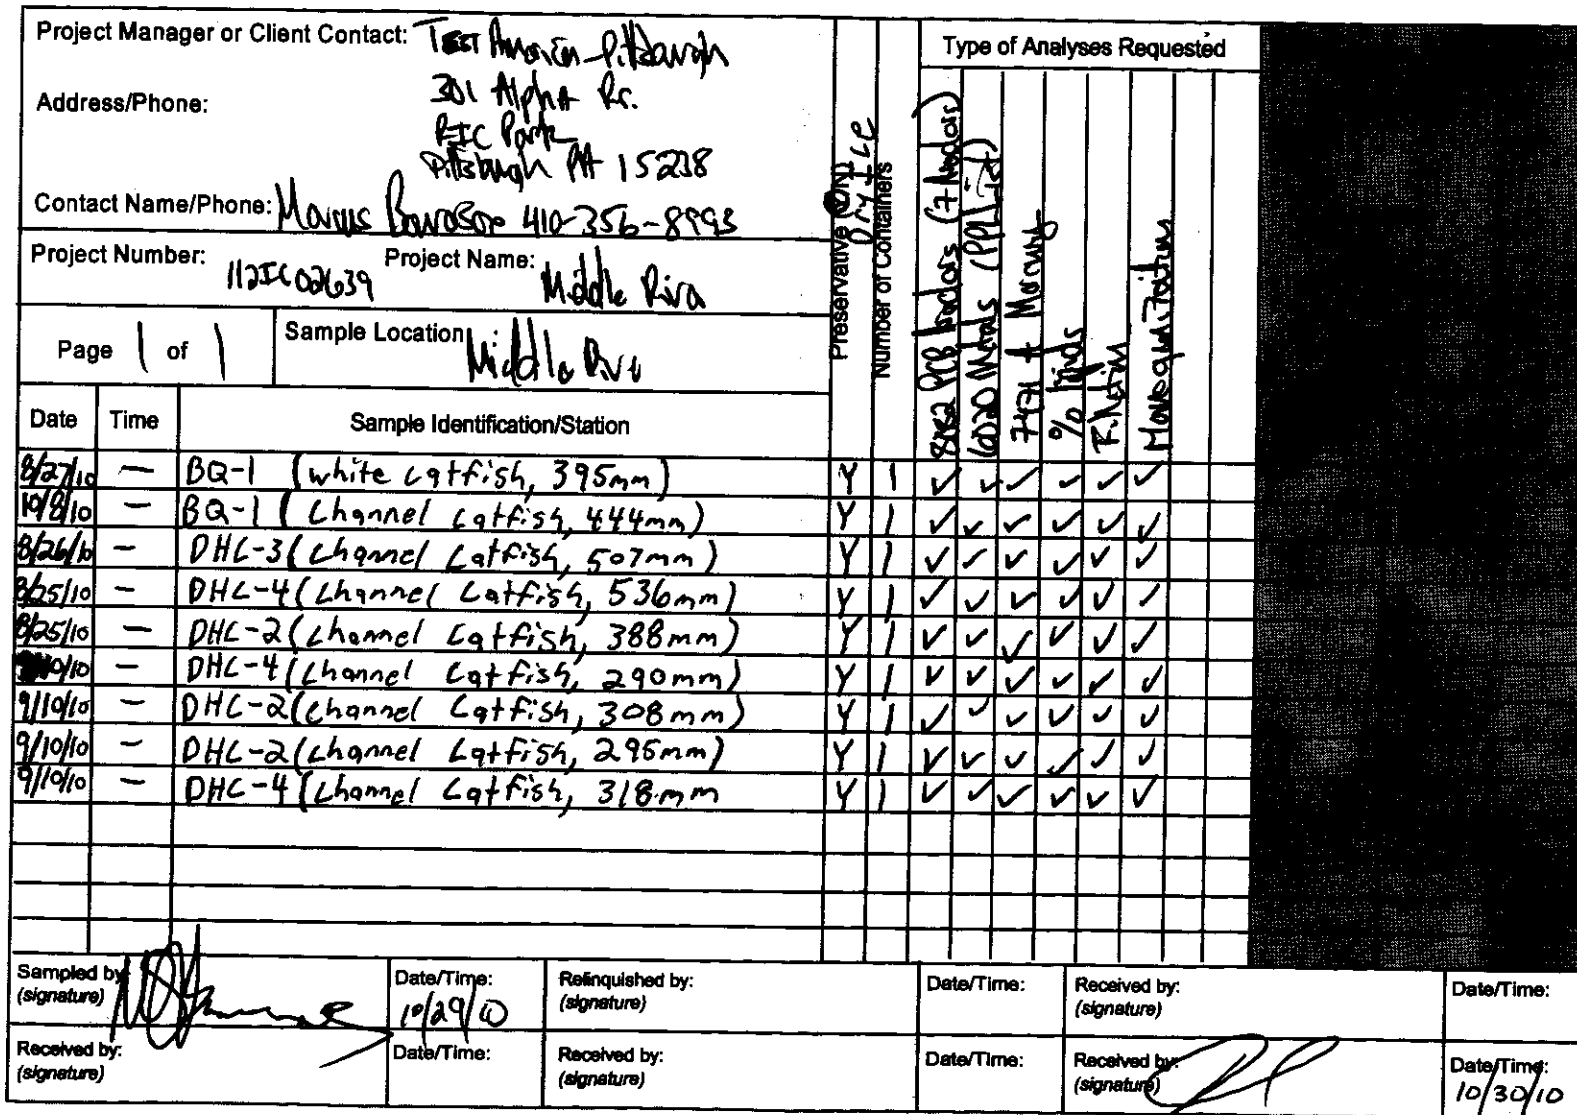 Project Manager or Client Contact: Test America - Pittsburgh
Type of Analyses Requested
Address/Phone: 301 Alpha Dr.
RIC Park
Pittsburgh PA 15238
Contact Name/Phone: Marcus 410-356-8993
Project Number: 112IC02639 Project Name: Middle River
Page 1 of 1 Sample Location Middle River
Preservative (Y/N)
Dry Ice
Number of Containers
8082 PCB Aroclors (7 Aroclors)
6020 Metals (PPL List)
7471 A Mercury
% lipids
Date Time Sample Identification/Station
8/27/10 — BQ-1 (white catfish, 395mm) Y 1 ✓ ✓ ✓ ✓ ✓ ✓
10/8/10 — BQ-1 (Channel Catfish, 444mm) Y 1 ✓ ✓ ✓ ✓ ✓ ✓
8/26/10 — DHC-3 (Channel Catfish, 507mm) Y 1 ✓ ✓ ✓ ✓ ✓ ✓
8/25/10 — DHC-4 (Channel Catfish, 536mm) Y 1 ✓ ✓ ✓ ✓ ✓ ✓
8/25/10 — DHC-2 (Channel Catfish, 388mm) Y 1 ✓ ✓ ✓ ✓ ✓ ✓
— DHC-4 (Channel Catfish, 290mm) Y 1 ✓ ✓ ✓ ✓ ✓ ✓
9/10/10 — DHC-2 (Channel Catfish, 308mm) Y 1 ✓ ✓ ✓ ✓ ✓ ✓
9/10/10 — DHC-2 (Channel Catfish, 295mm) Y 1 ✓ ✓ ✓ ✓ ✓ ✓
9/10/10 — DHC-4 (Channel Catfish, 318mm Y 1 ✓ ✓ ✓ ✓ ✓ ✓
Sampled by: (signature) Date/Time: 10/29/10 Relinquished by: (signature) Date/Time: Received by: (signature) Date/Time:
Received by: (signature) Date/Time: Received by: (signature) Date/Time: Received by: (signature) Date/Time: 10/30/10